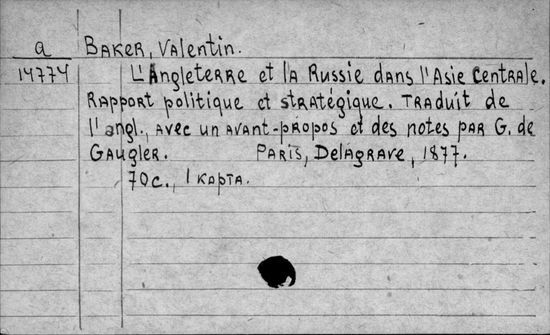 a Baker, Valentin.
14774 L'Angleterre et la Russie dans l'Asie Centrale.
Rapport politique et stratégique. Traduit de
l'angl., avec un avant-propos et des notes par G. de
Gaugler. Paris, Delagrave, 1877.
70 с., 1 карта.